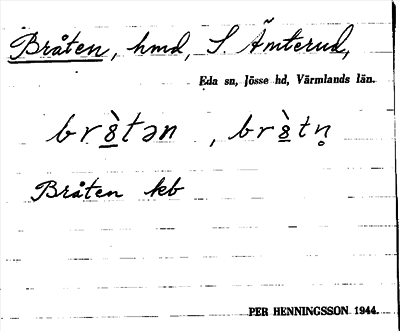 Bråten, hmd, S. Ämterud,
Eda sn, Jösse hd, Värmlands län.
br8̲̀tən , br8̲̀tn̥
Bråten kb
PER HENNINGSSON 1944.